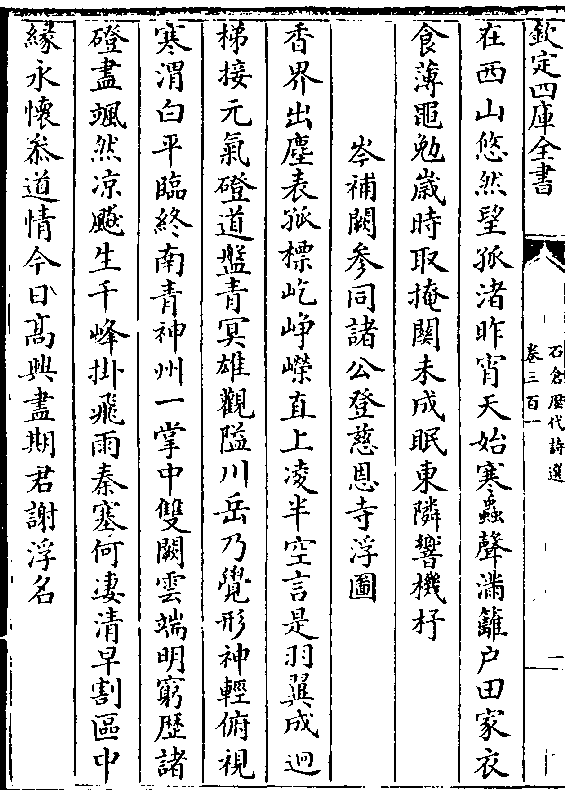 欽定四庫全書
石倉歷代詩選
卷三百一
在西山悠然望孤渚昨宵天始寒蟲聲滿籬户田家衣
食薄黽勉歲時取掩關未成眠東隣響機杼
岑補闕參同諸公登慈恩寺浮圖
香界出塵表孤標屹崢嶸直上凌半空言是羽翼成迥
梯接元氣磴道盤青冥雄觀隘川岳乃覺形神輕俯視
寒渭白平臨終南青神州一掌中雙闕雲端明窮歴諸
磴盡颯然凉飈生千峰掛飛雨秦塞何凄清早割區中
緣永懷叅道情今日髙興盡期君謝浮名